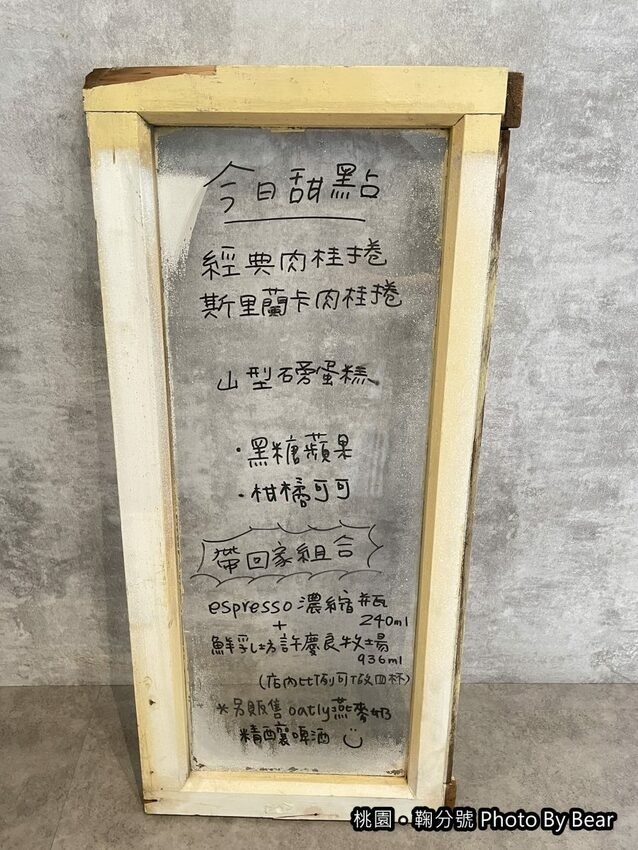 今日甜點
經典肉桂捲
斯里蘭卡肉桂捲
山型磅蛋糕
·黑糖蘋果
·柑橘可可
帶回家組合
espresso濃縮 瓶
240ml
+
鮮乳坊許慶良牧場
936ml
(店內比例可做四杯)
*另販售oatly燕麥奶
精釀啤酒
桃園·鞠分號 Photo By Bear